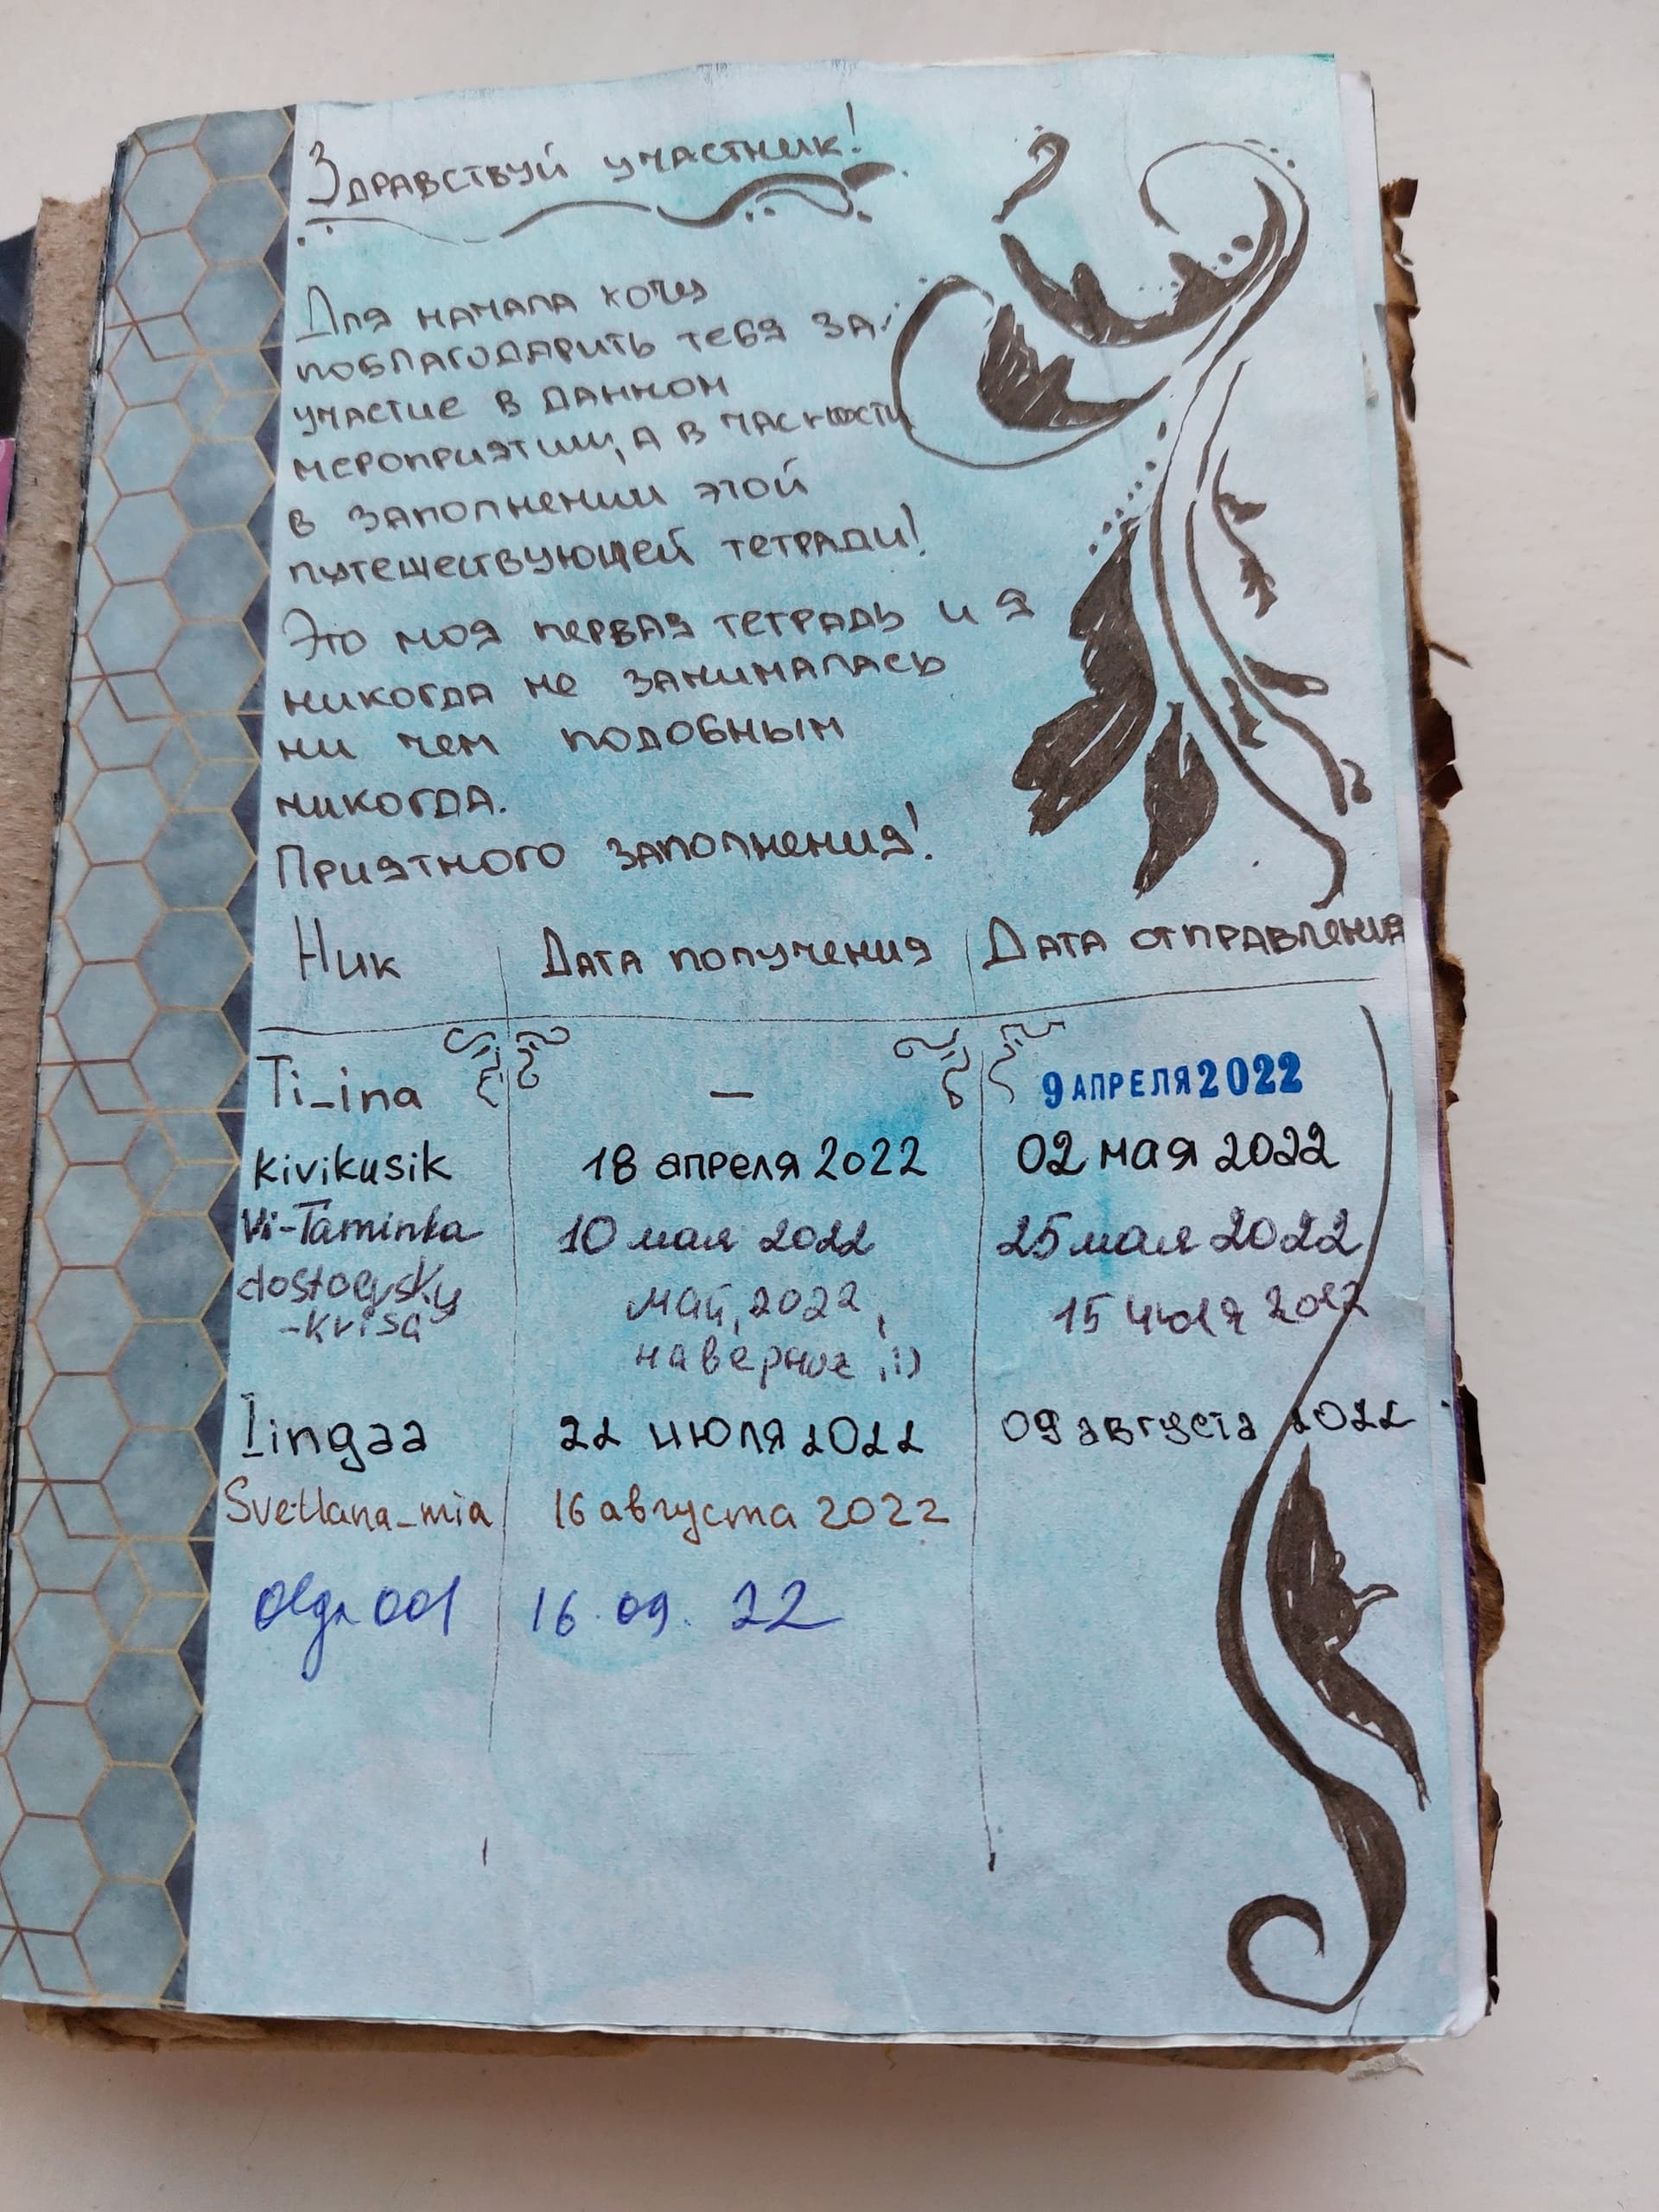 Здравствуй участник!
Для начала хочу
поблагодарить тебя за
участие в данном
мероприятии, а в часности
в заполнении этой
путешествующей тетради!
Это моя первая тетрадь и я
никогда не занималась
ни чем подобным
никогда.
Приятного заполнения!
Ник Дата получения Дата отправления
Ti_ina — 9 АПРЕЛЯ 2022
kivikusik 18 апреля 2022 02 мая 2022
Vi-Taminka 10 мая 2022 25 мая 2022
dostoevsky
-krisa май, 2022, 15 июля 2022
наверное :)
Lingaa 22 июля 2022 09 августа 2022
Svetlana_mia 16 августа 2022
Olga001 16.09.22